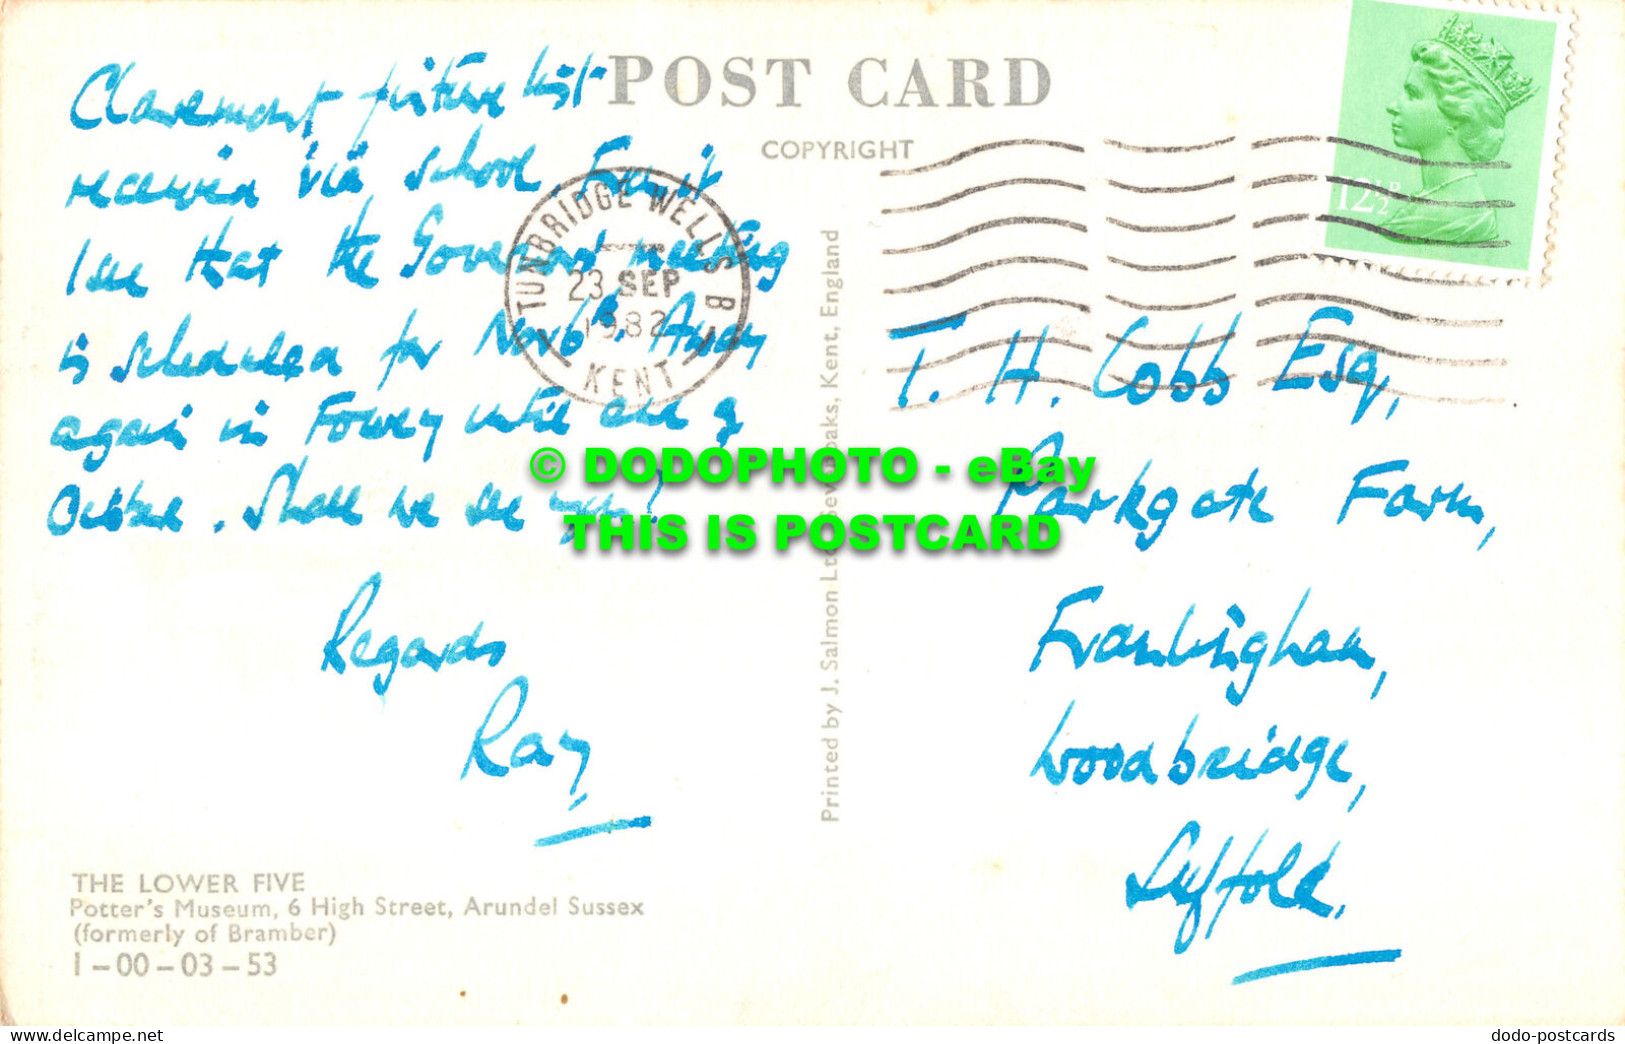 POST CARD
COPYRIGHT
12½P
TUNBRIDGE WELLS B
23 SEP
1982
KENT
Claremont picture list
received via school. From it
I see that the Governors meeting
is scheduled for Nov 6th. Away
again in Fowey until end of
October. Shall we see you?
Regards
Ray
T. H. Cobb Esq,
Parkgate Farm,
Framlingham,
Woodbridge,
Suffolk.
Printed by J. Salmon Ltd., Sevenoaks, Kent, England
THE LOWER FIVE
Potter's Museum, 6 High Street, Arundel Sussex
(formerly of Bramber)
1-00-03-53
© DODOPHOTO - eBay
THIS IS POSTCARD
dodo-postcards